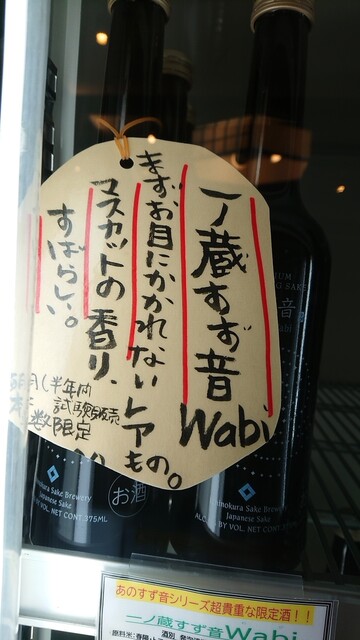 一ノ蔵すず音
Wabi
まずお目にかかれないレアもの。
マスカットの香り、
すばらしい。
月(半年内
試験販売
数限定
音
Wabi
inokura Sake Brewery
Japanese Sake
VOL. NET CONT.375ML
お酒
hinokura Sake Brewery
Japanese Sake
ALC. BY VOL. NET CONT. 375ML
あのすず音シリーズ超貴重な限定酒!!
一ノ蔵すず音Wabi